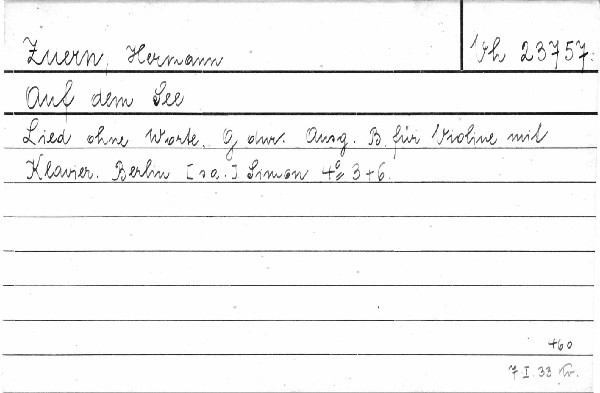 Zuern, Hermann
Vh 23757.
Auf dem See
Lied ohne Worte. G dur. Ausg. B. für Violine mit
Klavier. Berlin [sa.] Simon 4° 3+6.
+60
7.I.33